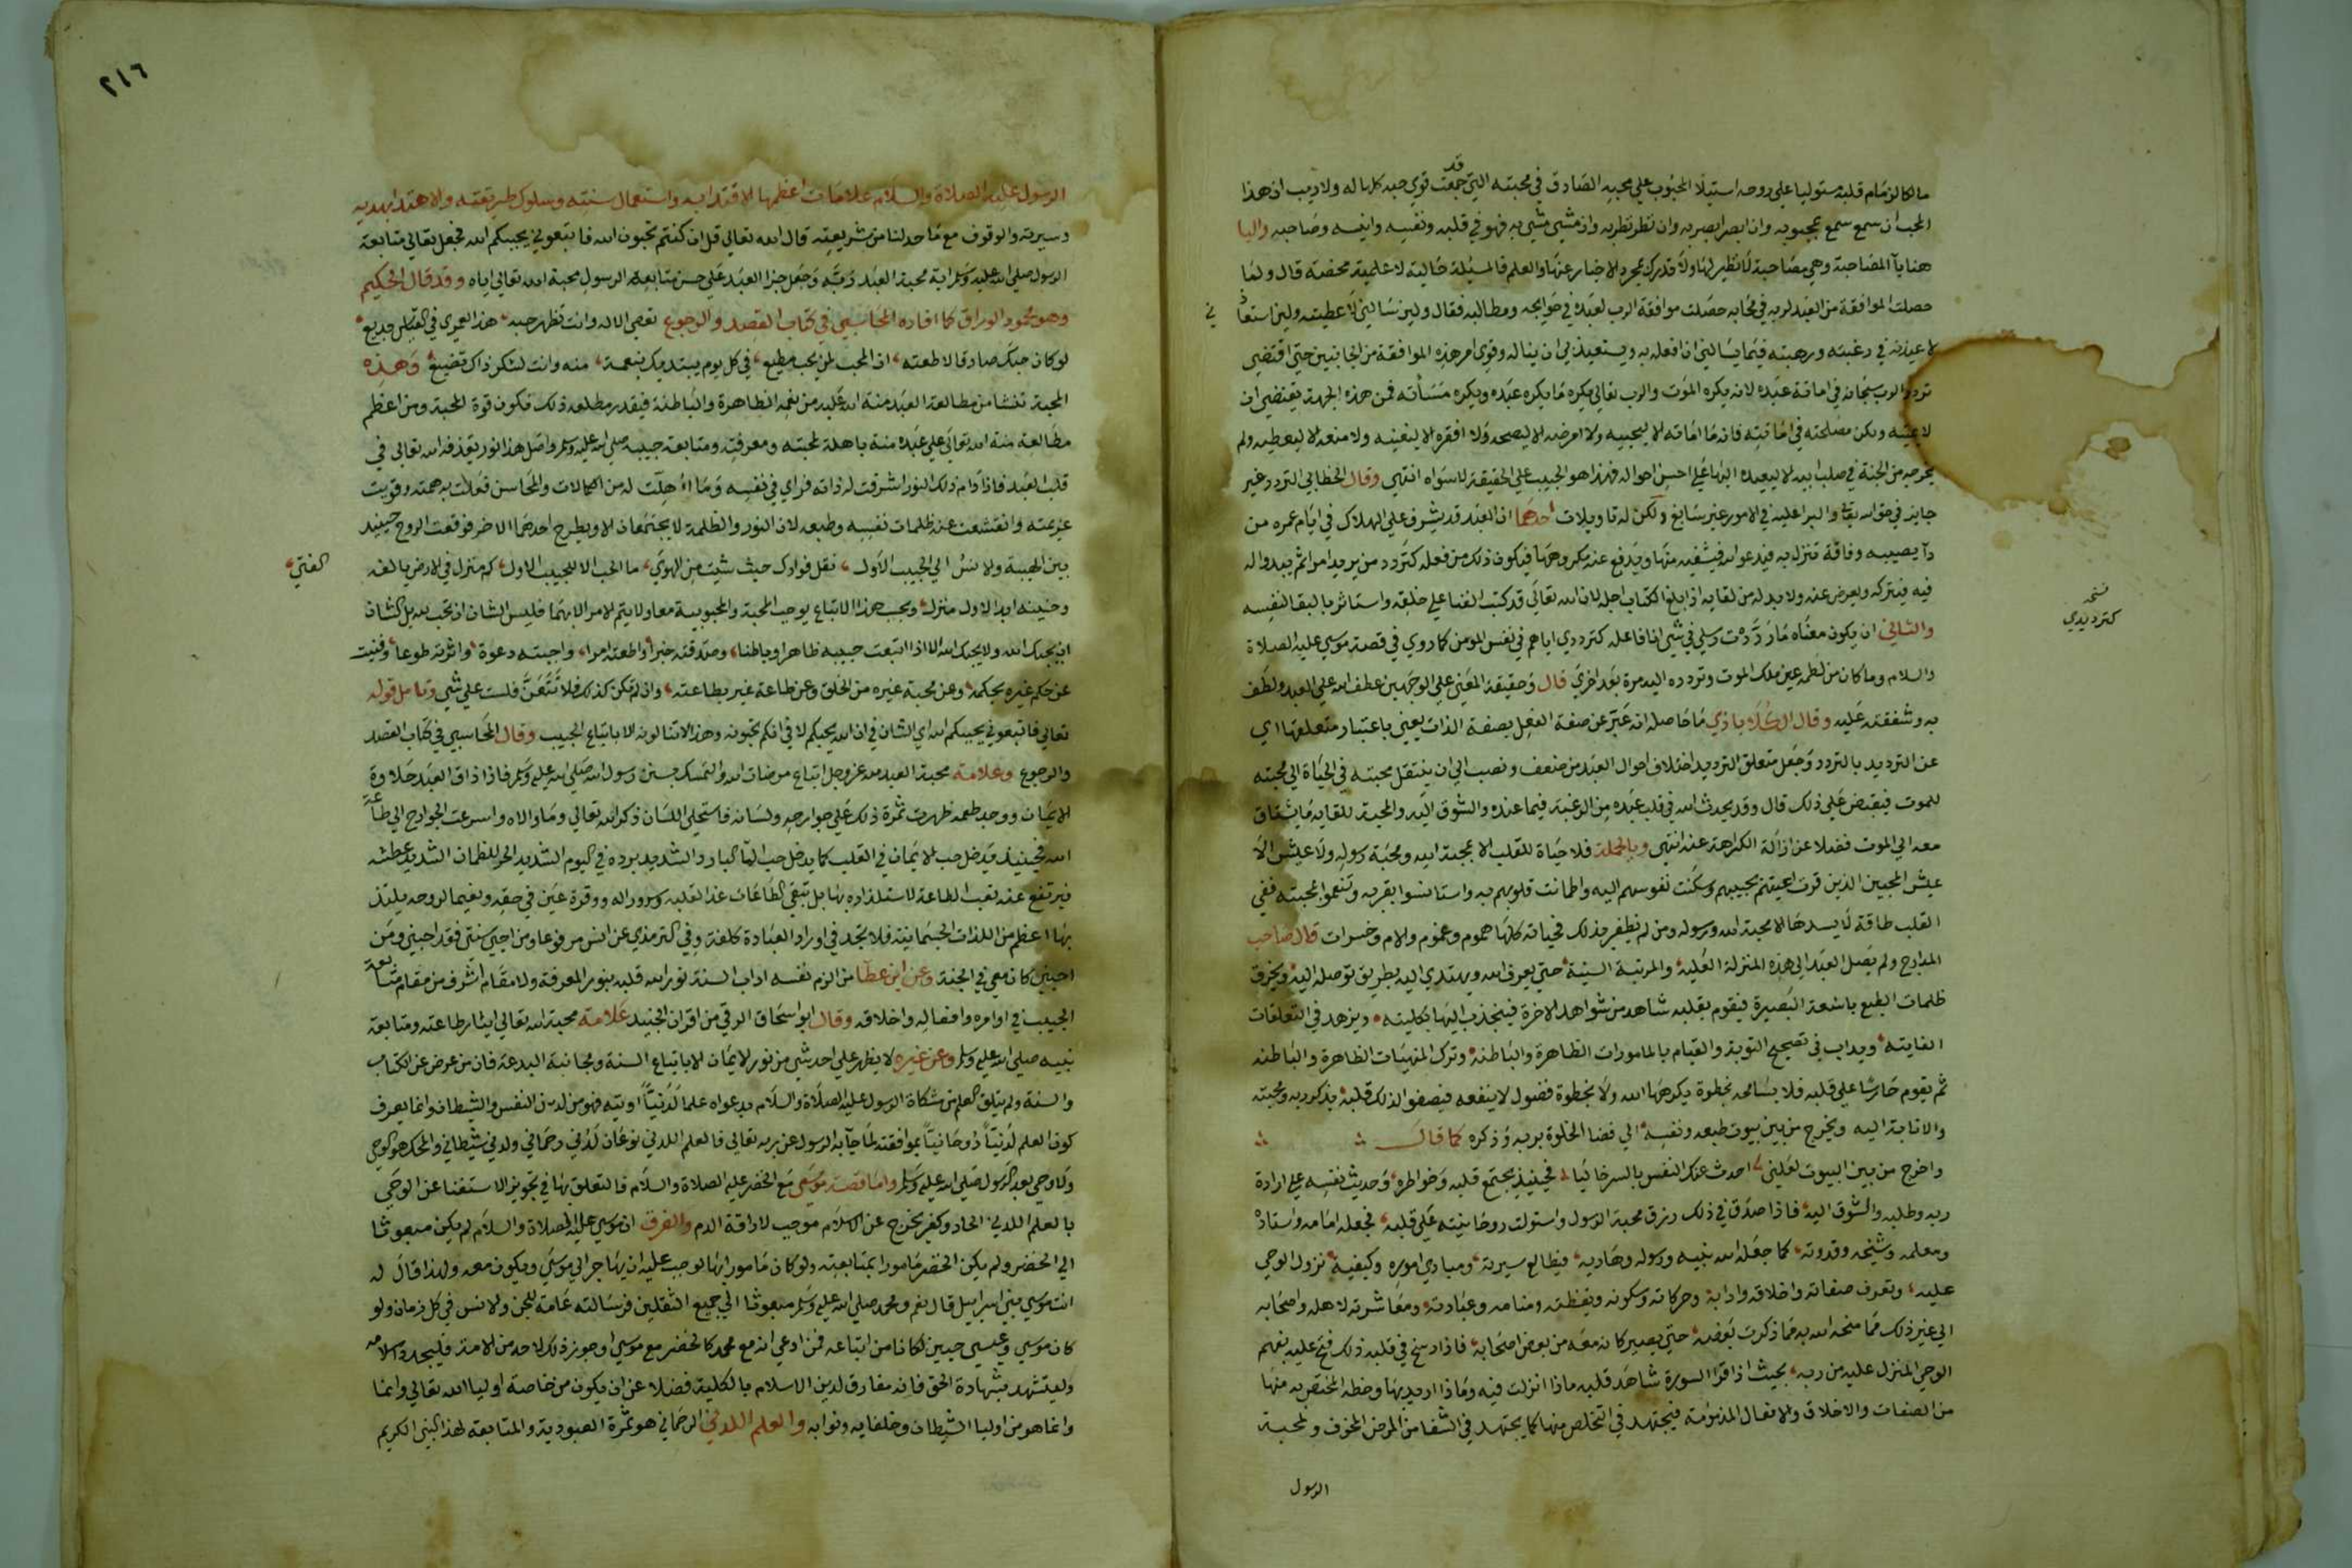 مالكا لزمام قلبه مستوليا على روحه استيلا المحبوب على محبه الصادق في محبته التي قد جمعت قوي حبه كلها له ولا ريب ان هذا
المحب ان سمع سمع بمحبوبه وان ابصر ابصر به وان نظر نظر به وان مشي مشي به فهو في قلبه ونفسه وانيسه وصاحبه والبا
هنا بآ المصاحبة وهي مصاحبة لا نظير لها ولا تدرك بمجرد الاخبار عنها والعلم فالمسئلة حالية لا علمية محضة قال ولما
حصلت الموافقة من العبد لربه في محابه حصلت موافقة الرب لعبده في حوايجه ومطالبه فقال ولين سالني لاعطينه ولين استعا ني
لاعيذنه في رغبته ورهبته فيما يسالني ان افعله به ويستعيذني ان يناله وقوي امر هذه الموافقة من الجانبين حتي اقتضي
تردد الرب سبحانه في اماتة عبده لانه يكره الموت والرب تعالي يكره ما يكره عبده ويكره مسأته فمن هذه الجهة يقتضي ان
لا يميته ولكن مصلحته في اماتته فانه ما اماته الا ليحييه ولا امرضه الا ليصحه ولا افقره الا ليغنيه ولا منعه الا ليعطيه ولم
يخرجه من الجنة في صلب ابيه الا ليعيده اليها على احسن احواله فهذا هو الحبيب على الحقيقة لا سواه انتهي وقال الخطابي التردد غير
جايز في حق الله تعا والبدا عليه في الامور غير سايغ ولكن له تاويلات احدهما ان العبد قد يشرف على الهلاك في ايام عمره من
دآ يصيبه وفاقة تنزل به فيدعو الله فيشفيه منها ويدفع عنه مكروهها فيكون ذلك من فعله كتردد من يريد امرا ثم يبدوا له
فيه فيتركه ويعرض عنه ولا بد له من لقايه اذا بلغ الكتاب اجله لان الله تعالي قد كتب الفنا على خلقه واستاثر بالبقا لنفسه
والثاني ان يكون معناه ما رددت رسلي في شي انا فاعله كترددي اياهم في نفس المومن كما روي في قصة موسي عليه الصلاة
نسخه
كترديدي
والسلام وما كان من لطمه عين ملك الموت وتردده اليه مرة بعد اخري قال وحقيقة المعني على الوجهين عطف الله علي العبد ولطفه
به وشفقته عليه وقال الكلاباذي ما حاصله انه عبر عن صفة الفعل بصفة الذات يعني باعتبار متعلقها اي
عن الترديد بالتردد وجعل متعلق الترديد اختلاف احوال العبد من ضعف ونصب الي ان ينتقل محبته في الحياة الي محبته
للموت فيقبض على ذلك قال وقد يحدث الله في قلب عبده من الرغبة فيما عنده والشوق اليه والمحبة للقايه ما يشتاق
معه الي الموت فضلا عن ازالة الكراهة عنه انتهي وبالجملة فلا حياة للقلب الا بمحبة الله ومحبة رسوله ولا عيش الا
عيش المحبين الذين قرت اعينهم بحبيبهم وسكنت نفوسهم اليه واطمانت قلوبهم به واستانسوا بقربه وتنعموا بمحبته ففي
القلب طاقة لا يسدها الا محبة الله ورسوله ومن لم يظفر بذلك فحياته كلها هموم وغموم والام وحسرات قال صاحب
المدارج ولم يصل العبد الي هذه المنزلة العلية والمرتبة السنية حتي يعرف الله ويهتدي اليه بطريق توصله اليه ويخرق
ظلمات الطبع باشعة البصيرة فيقوم بقلبه شاهد من شواهد الاخرة فينجذب اليها بكليته ويزهد في التعلقات
الفانيه ويداب في تصحيح التوبة والقيام بالمامورات الظاهرة والباطنة وترك المنهيات الظاهرة والباطنة
ثم يقوم حارسا على قلبه فلا يسامحه بخطوة يكرهها الله ولا بخطوة فضول لا ينفعه فيصفوا لذلك قلبه بذكر ربه ومحبته
والانابة اليه ويخرج من بين بيوت طبعه ونفسه الي فضا الخلوة بربه وذكره كما قال
واخرج من بين البيوت لعلني احدث عنك النفس بالسر خاليا فحينيذ يجتمع قلبه وخواطره وحديث نفسه على ارادة
ربه وطلبه والشوق اليه فاذا صدق في ذلك رزق محبة الرسول واستولت روحانيته على قلبه فجعله امامه واستاذه
ومعلمه وشيخه وقدوته كما جعله الله نبيه ورسوله وهاديه فيطالع سيرته ومبادي اموره وكيفية نزول الوحي
عليه ويعرف صفاته واخلاقه وادابه وحركاته وسكونه ويقظته ومنامه وعبادته ومعاشرته لاهله واصحابه
الي غير ذلك مما منحه الله به مما ذكرت بعضه حتي يصير كانه معه من بعض اصحابه فاذا رسخ في قلبه ذلك فتح عليه بفهم
الوحي المنزل عليه من ربه بحيث اذا قرا السورة شاهد قلبه ماذا انزلت فيه وماذا اريد بها وحظه المختص به منها
من الصفات والاخلاق والافعال المذمومة فيجتهد في التخلص منها كما يجتهد في الشفا من المرض المخوف ولمحبة
الرسول
٢١٦
الرسول عليه الصلاة والسلام علامات اعظمها الاقتدا به واستعمال سنته وسلوك طريقته والاهتدا بهديه
وسيرته والوقوف مع ما حد لنا من شريعته قال الله تعالي قل ان كنتم تحبون الله فاتبعوني يحببكم الله فجعل تعالي متابعة
الرسول صلى الله عليه وسلم اية محبة العبد ربه وجعل جزا العبد على حسن متابعة الرسول محبة الله تعالي اياه وقد قال الحكيم
وهو محمود الوراق كما افاده المحاسبي في كتاب القصد والرجوع تعصي الاله وانت تظهر حبه هذا لعمري في القياس بديع
لو كان حبك صادقا لاطعته ان المحب لمن يحب مطيع في كل يوم يبتديك بنعمة منه وانت لشكر ذاك تضيع وهذه
المحبة تنشا من مطالعة العبد منة الله عليه من نعمه الظاهرة والباطنة فبقدر مطلعه ذلك تكون قوة المحبة ومن اعظم
مطالعة منة الله تعالي على عبده منة باهلة لمحبته ومعرفته ومتابعة حبيبه صلى الله عليه وسلم واصل هذا نور يقذفه الله تعالي في
قلب العبد فاذا دام ذلك النور اشرقت له ذاته فراي في نفسه وما اهلت له من الكمالات والمحاسن فعلت به همته وقويت
عزيمته وانقشعت عنه ظلمات نفسه وطبعه لان النور والظلمة لا يجتمعان الا ويطرح احدهما الاخر فوقعت الروح حينيذ
بين الهيبة والانس الي الحبيب الاول نقل فوادك حيث شيت من الهوي ما الحب الا للحبيب الاول كم منزل في الارض يالفه الفتي
وحنينه ابدا لاول منزل وبحسب هذا الاتباع يوجب المحبة والمحبوبية معا ولا يتم الامر الا بهما فليس الشان ان تحب الله بل الشان
ان يحبك الله ولا يحبك الله الا اذا اتبعت حبيبه ظاهرا وباطنا وصدقته خبرا واطعته امرا واجبته دعوة واثرته طوعا وفنيت
عن حكم غيره بحكمه وعن محبة غيره من الخلق وعن طاعة غيره بطاعته وان لم تكن كذلك فلا تتعن فلست علي شي وتامل قوله
تعالي فاتبعوني يحببكم الله اي الشان في ان الله يحبكم لا في انكم تحبونه وهذا لا تنالونه الا باتباع الحبيب وقال المحاسبي في كتاب القصد
والرجوع وعلامة محبة العبد لله عز وجل اتباع مرضات الله والتمسك بسنن رسول الله صلى الله عليه وسلم فاذا ذاق العبد حلاوة
الايمان ووجد طعمه ظهرت ثمرة ذلك على جوارحه ولسانه فاستحلي اللسان ذكر الله تعالي وما والاه واسرعت الجوارح الي طاعة
الله فحينيذ يدخل حب الايمان في القلب كما يدخل حب الما البارد الشديد برده في اليوم الشديد الحر للظمان الشديد عطشه
فيرتفع عنه تعب الطاعة لاستلذاذه بها بل تبقي الطاعات غذا لقلبه وسرورا له وقرة عين في حقه ونعيما لروحه يلتذ
بها اعظم من اللذات الجسمانية فلا يجد في اوراد العبادة كلفة وفي الترمذي عن انس مرفوعا ومن احيي سنتي فقد احبني ومن
احبني كان معي في الجنة وعن ابن عطا من الزم نفسه اداب السنة نور الله قلبه بنور المعرفة ولا مقام اشرف من مقام متابعة
الحبيب في اوامره وافعاله واخلاقه وقال ابو اسحاق الرقي من اقران الجنيد علامة محبة الله تعالي ايثار طاعته ومتابعة
نبيه صلى الله عليه وسلم وعن غيره لا يظهر على احد شي من نور الايمان الا باتباع السنة ومجانبة البدعة فان من عرض عن الكتاب
والسنة ولم يتلق العلم من مشكاة الرسول عليه الصلاة والسلام بدعواه علما لدنيا اوتيه فهو من لدن النفس والشيطان وانما يعرف
كون العلم لدنيا روحانيا بموافقته لما جآ به الرسول عن ربه تعالي فالعلم اللدني نوعان لدني رحماني ولدني شيطاني والمحك هو الوحي
ولا وحي بعد الرسول صلى الله عليه وسلم واما قصة موسي مع الخضر عليه الصلاة والسلام فالتعلق بها في تجويز الاستغنا عن الوحي
بالعلم اللدني الحاد وكفر يخرج عن الاسلام موجب لاراقة الدم والفرق ان موسي عليه الصلاة والسلام لم يكن مبعوثا
الي الخضر ولم يكن الخضر مامورا بمتابعته ولو كان مامورا بها لوجب عليه ان يهاجر الي موسي ويكون معه ولهذا قال له
انت موسي بني اسراييل قال نعم ومحمد صلى الله عليه وسلم مبعوثا الي جميع الثقلين فرسالته عامة للجن والانس في كل زمان ولو
كان موسي وعيسي حيين لكانا من اتباعه فمن ادعي انه مع محمد كالخضر مع موسي او جوز ذلك لاحد من الامة فليجدد اسلامه
وليتشهد بشهادة الحق فانه مفارق لدين الاسلام بالكلية فضلا عن ان يكون من خاصة اوليا الله تعالي وانما
وانما هو من اوليا الشيطان وخلفايه ونوابه والعلم اللدني الرحماني هو ثمرة العبودية والمتابعة لهذا النبي الكريم